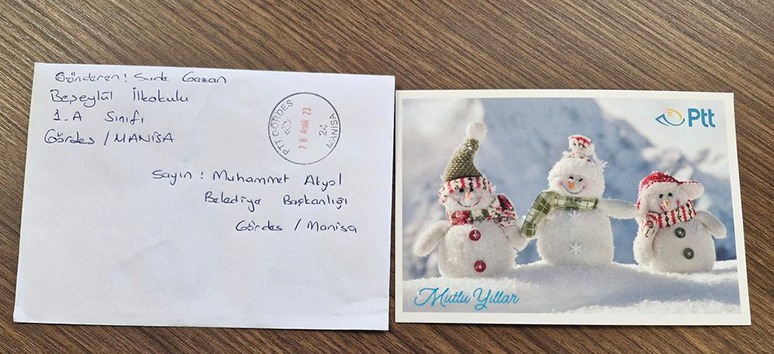 Gönderen: Sude Gazan
Beşeylül İlkokulu
1-A Sınıfı
Gördes / MANİSA
PTT GÖRDES
Aralık 23
24
MANİSA
Sayın: Muhammet Akyol
Belediye Başkanlığı
Gördes / Manisa
Ptt
Mutlu Yıllar